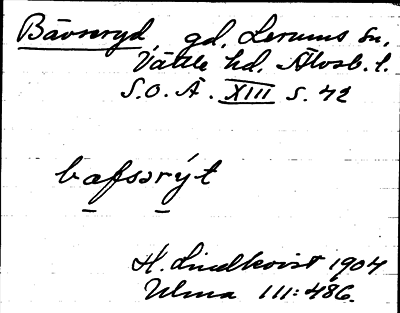 Bävsryd gd, Lerums sn,
Vättle hd. Älvsb. l.
S.O.Ä. XIII s. 42
bafsərýt
H. Lindkvist 1904
Ulma 111:486.